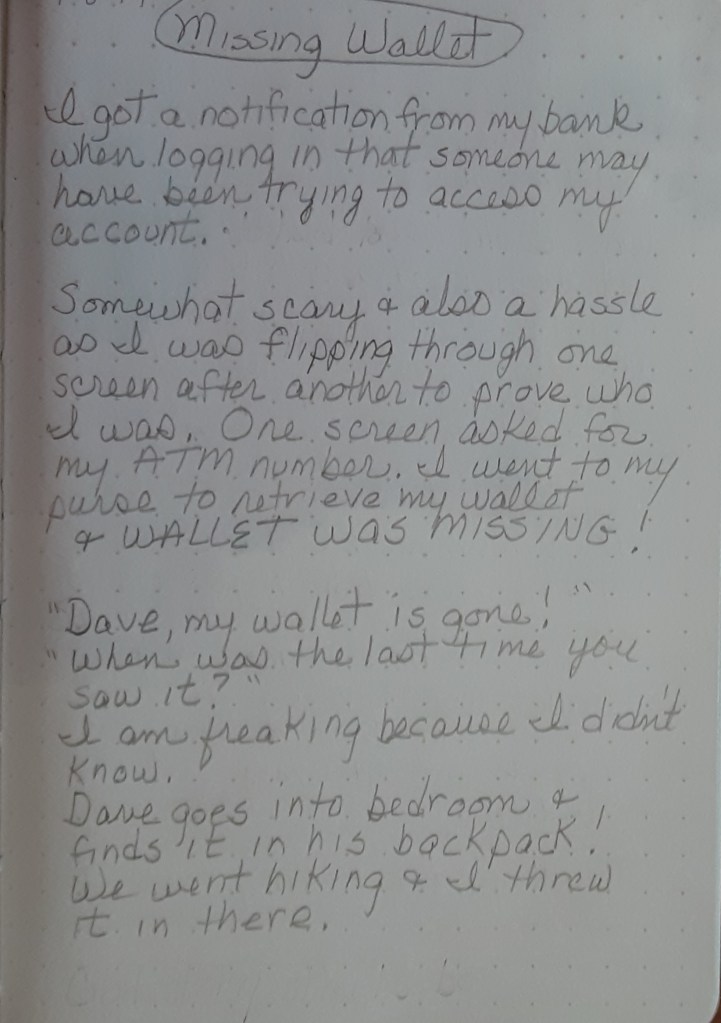 Missing Wallet
I got a notification from my bank
when logging in that someone may
have been trying to access my
account.
Somewhat scary & also a hassle
as I was flipping through one
screen after another to prove who
I was. One screen asked for
my ATM number. I went to my
purse to retrieve my wallet
& WALLET WAS MISSING!
"Dave, my wallet is gone!"
"When was the last time you
saw it?"
I am freaking because I didn't
know.
Dave goes into bedroom &
finds it in his backpack!
We went hiking & I threw
it in there.